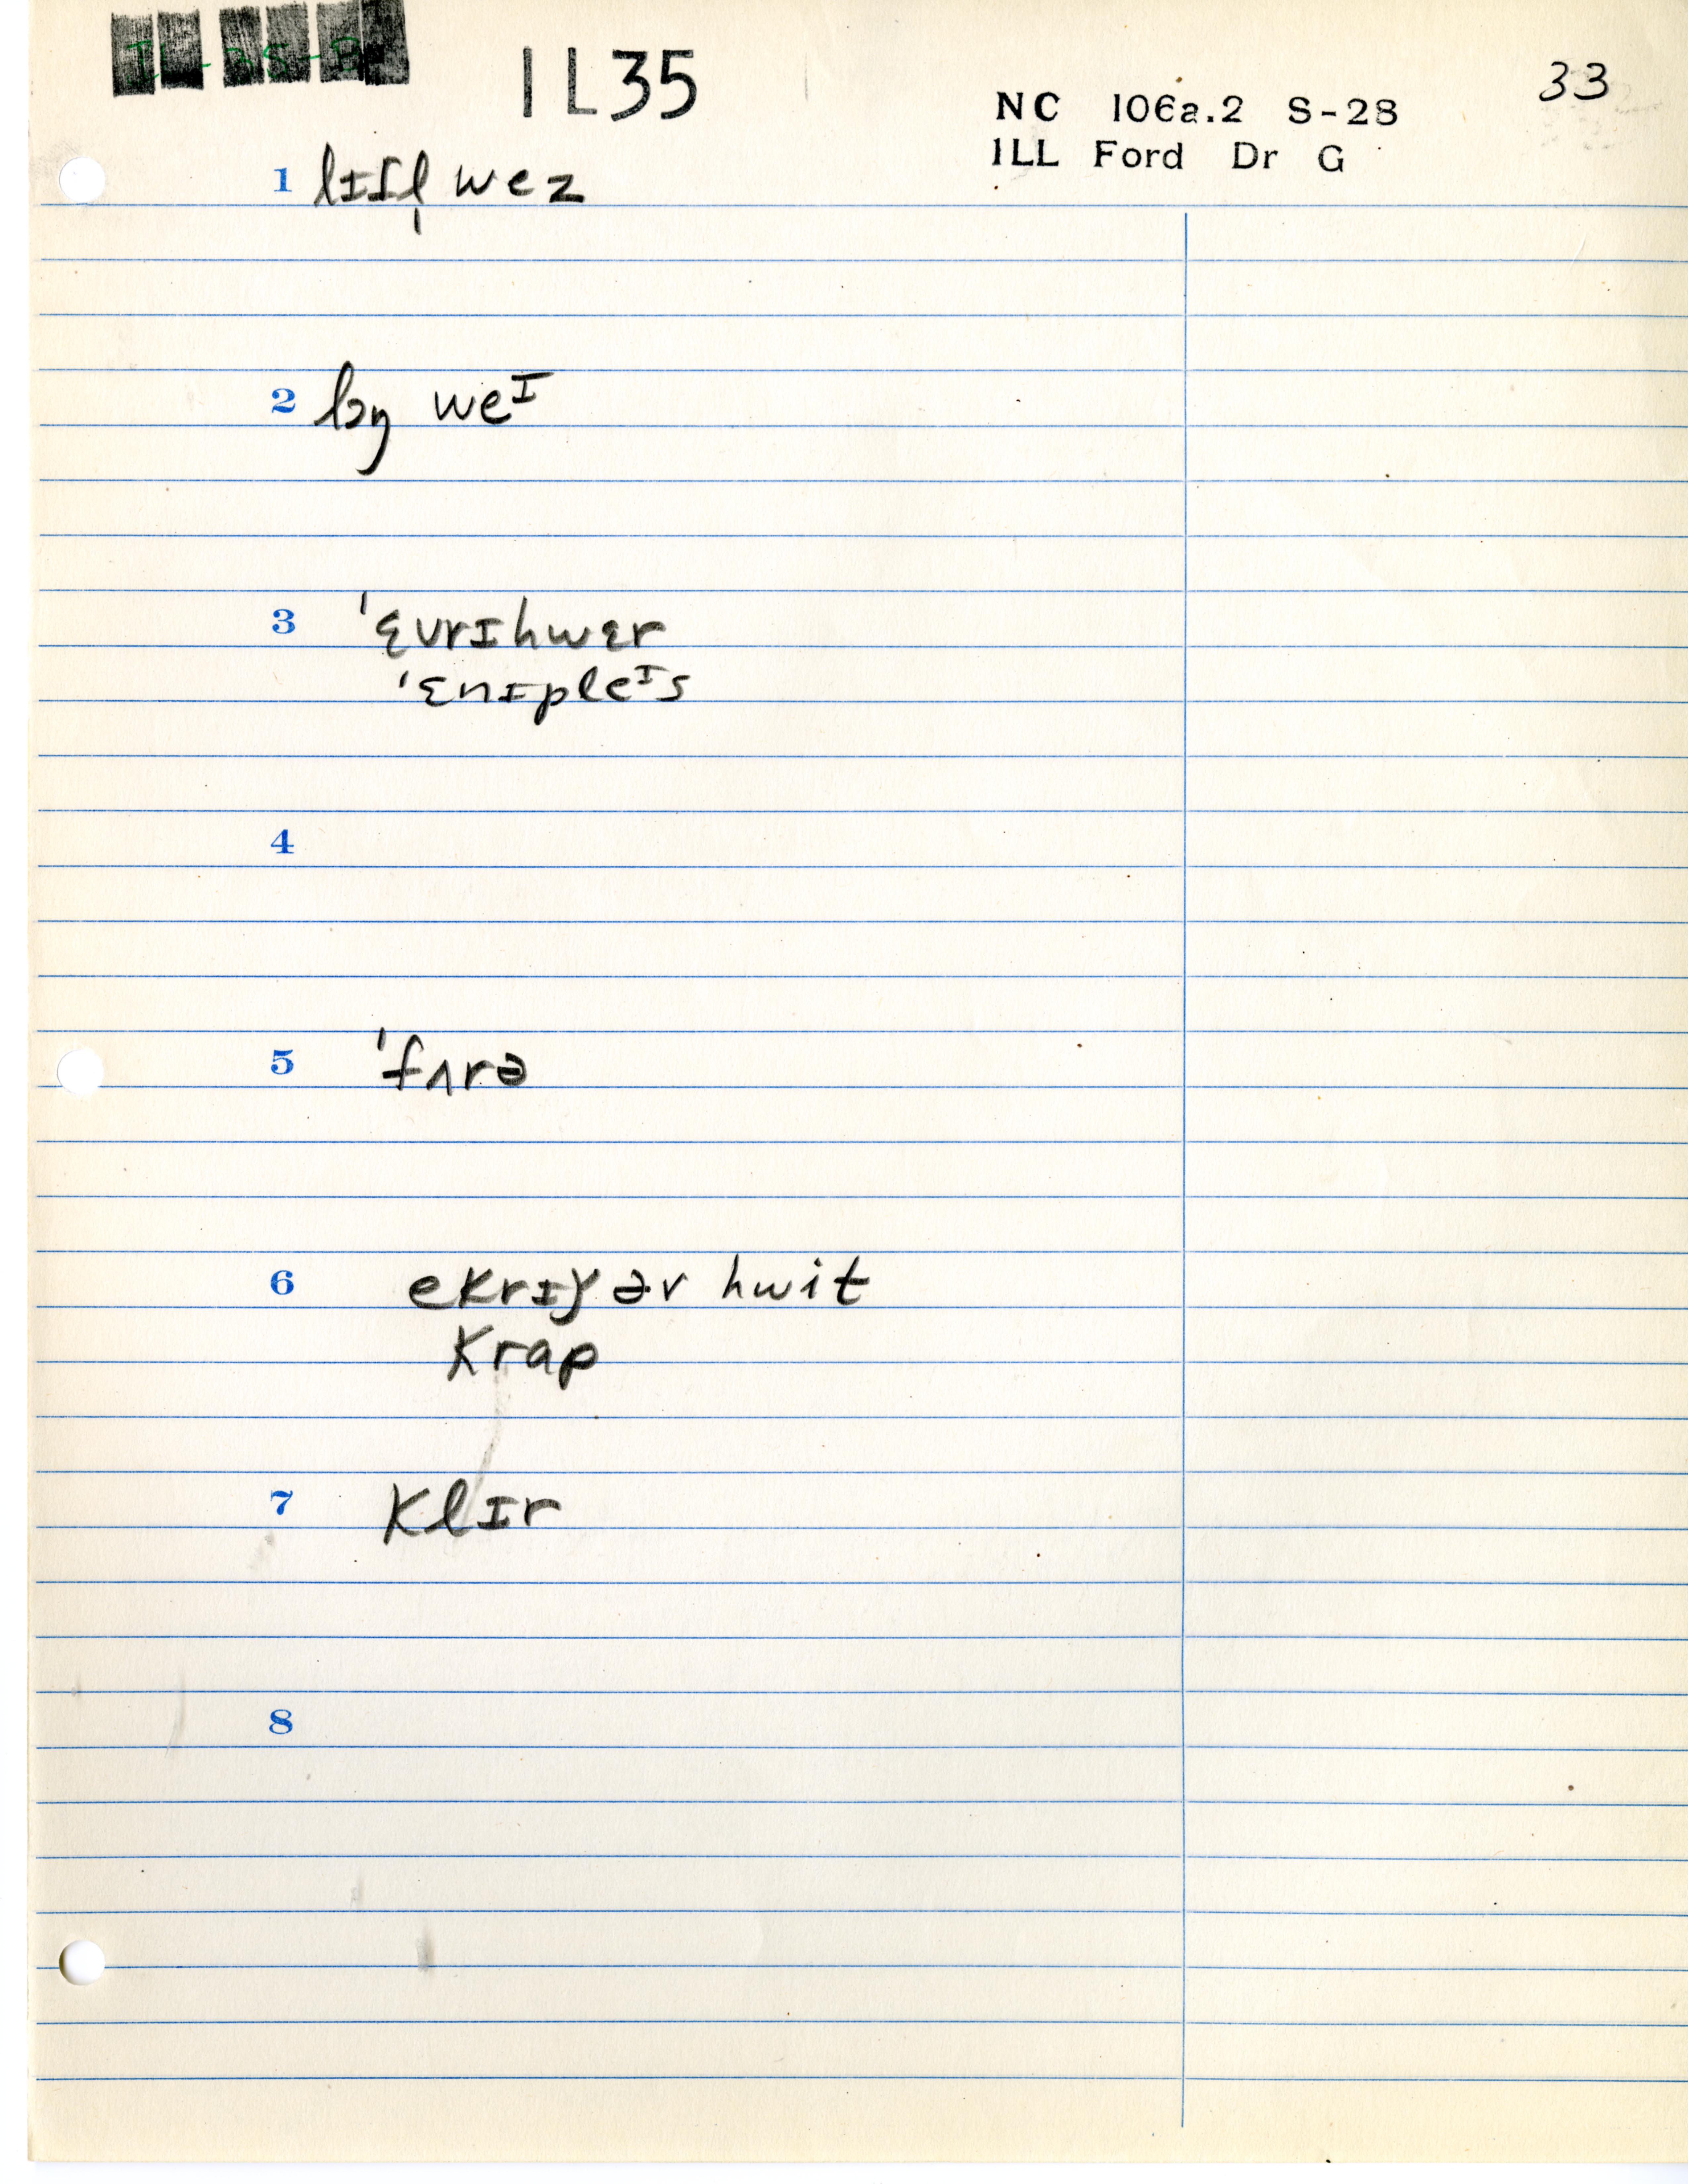 IL-35-B
IL35
33
NC 106a.2 S-28
ILL Ford Dr G
1 lɪɾl̩ wez
2 lɔŋ weᴵ
3 ˈɛvrɪhwɛr
ˈɛnɪpleᴵs
4
5 ˈfʌrə
6 ekrɪɣ əv hwit
krap
7 klɪr
8